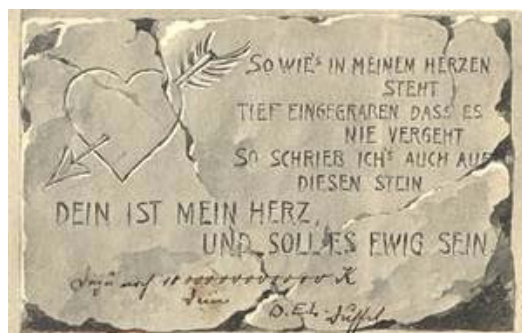 SO WIE'S IN MEINEM HERZEN
STEHT
TIEF EINGEGRABEN DASS ES
NIE VERGEHT
SO SCHRIEB ICH'S AUCH AUF
DIESEN STEIN
DEIN IST MEIN HERZ,
UND SOLL ES EWIG SEIN
Dazu noch